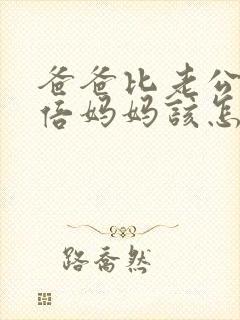 爸爸比老公
倍妈妈該怎
路喬然